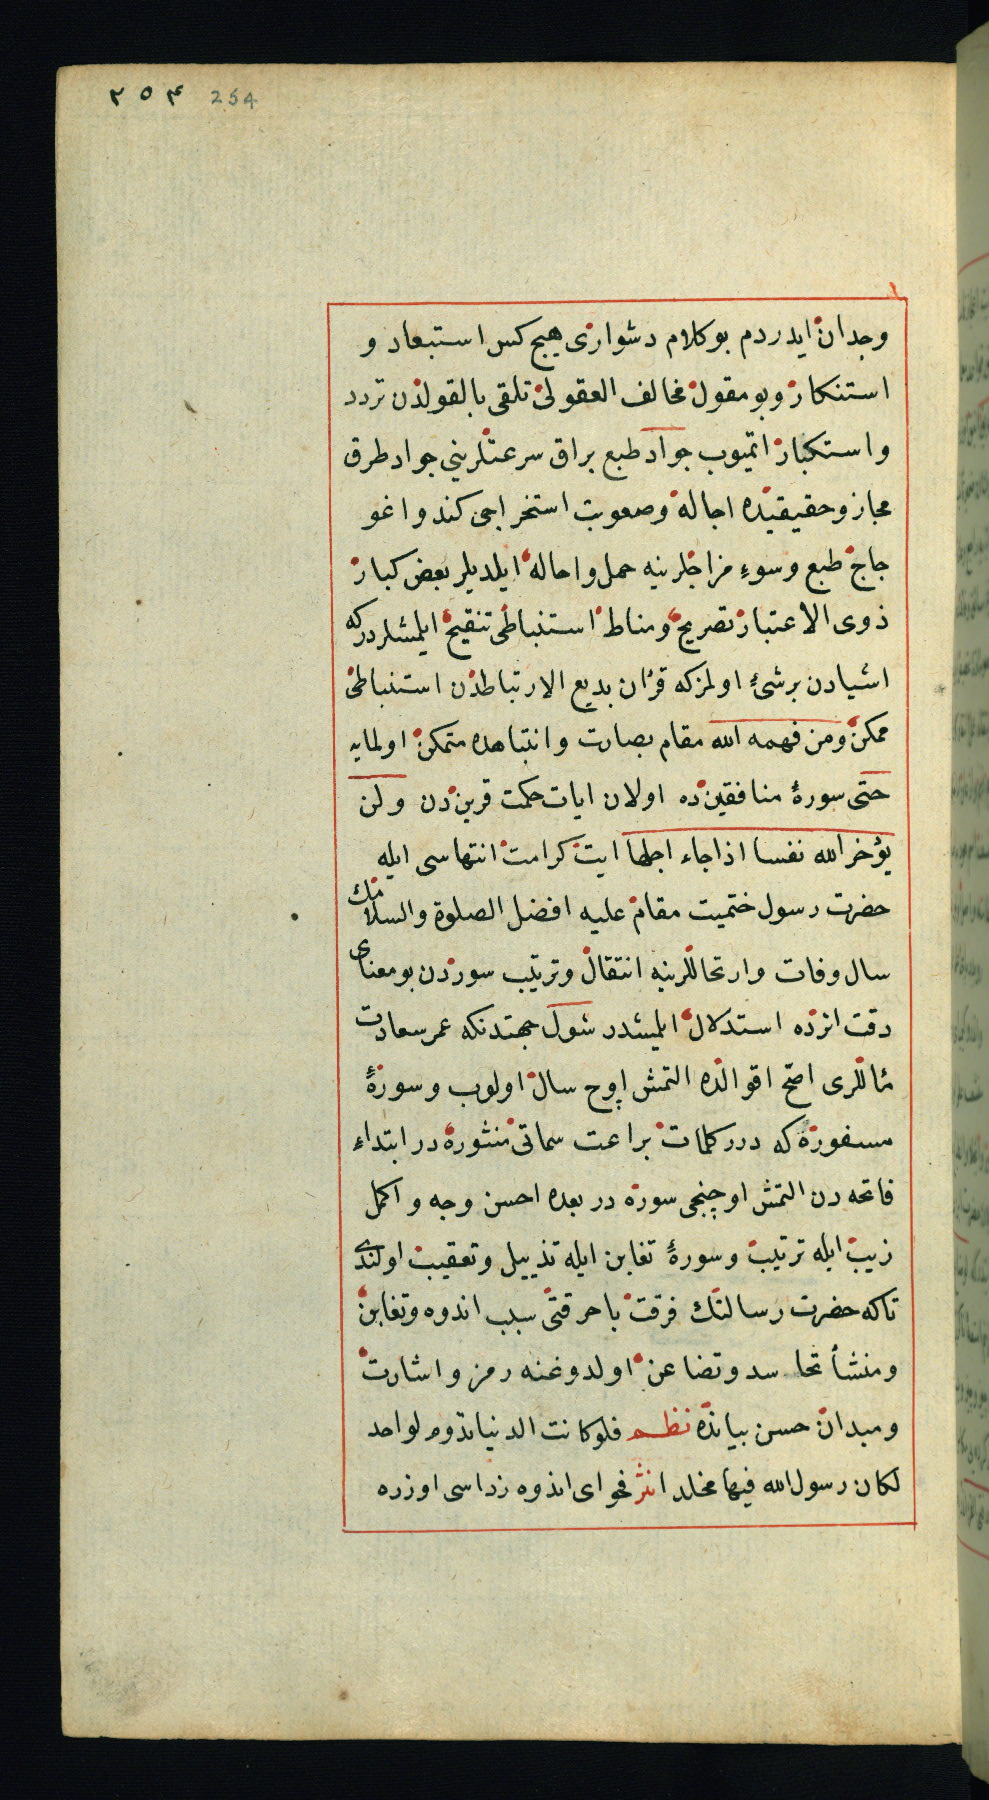 ٢٥۴ 254
وجدان ايدردم بو كلام دشوارى هيچ كس استبعاد و
استنكار و بو مقول مخالف العقولى تلقى بالقولدن تردد
و استكبار اتميوب جواد طبع براق سرعتلريني جواد طرق
مجاز و حقيقيده اجاله و صعوبت استخراجى كند و اعو
جاج طبع و سوء مزاجلرينه حمل و احاله ايلديلر بعض كبار
ذوى الاعتبار تصريح و مناط استنباطى تنقيح ايلمشلردر كه
اشيادن برشئ اولمز كه قرآن بديع الارتباطدن استنباطى
ممكن و من فهمه الله مقام بصارت و انتباهده متمكن اولمايه
حتى سورۀ منافقين ده اولان ايات حكمت قرين دن ولن
يؤخر الله نفسا اذا جاء اجلها ايت كرامت انتهاسى ايله
حضرت رسول ختميت مقام عليه افضل الصلوة والسلامك
سال وفات و ارتحاللرينه انتقال و ترتيب سوردن بو معناى
دقت اثرده استدلال ايلمشدر شول جهتدنكه عمر سعادت
مأللرى اصح اقوالده التمش اوچ سال اولوب و سورۀ
مسفوره كه درر كلمات براعت سماتى منثوره در ابتداء
فاتحه دن التمش اوچنجى سوره در بعده احسن وجه و اكمل
زيب ايله ترتيب و سورۀ تغابن ايله تذييل و تعقيب اولندى
تاكه حضرت رسالتك فرقت با حرقتى سبب اندوه و تغابن
و منشأ تحاسد و تضاعن اولدوغنه رمز و اشارت
و ميدان حسن بيانده نظم فلو كانت الدنيا تدوم لواحد
لكان رسول الله فيها مخلدا نثر فحواى اندوه زداسى اوزره